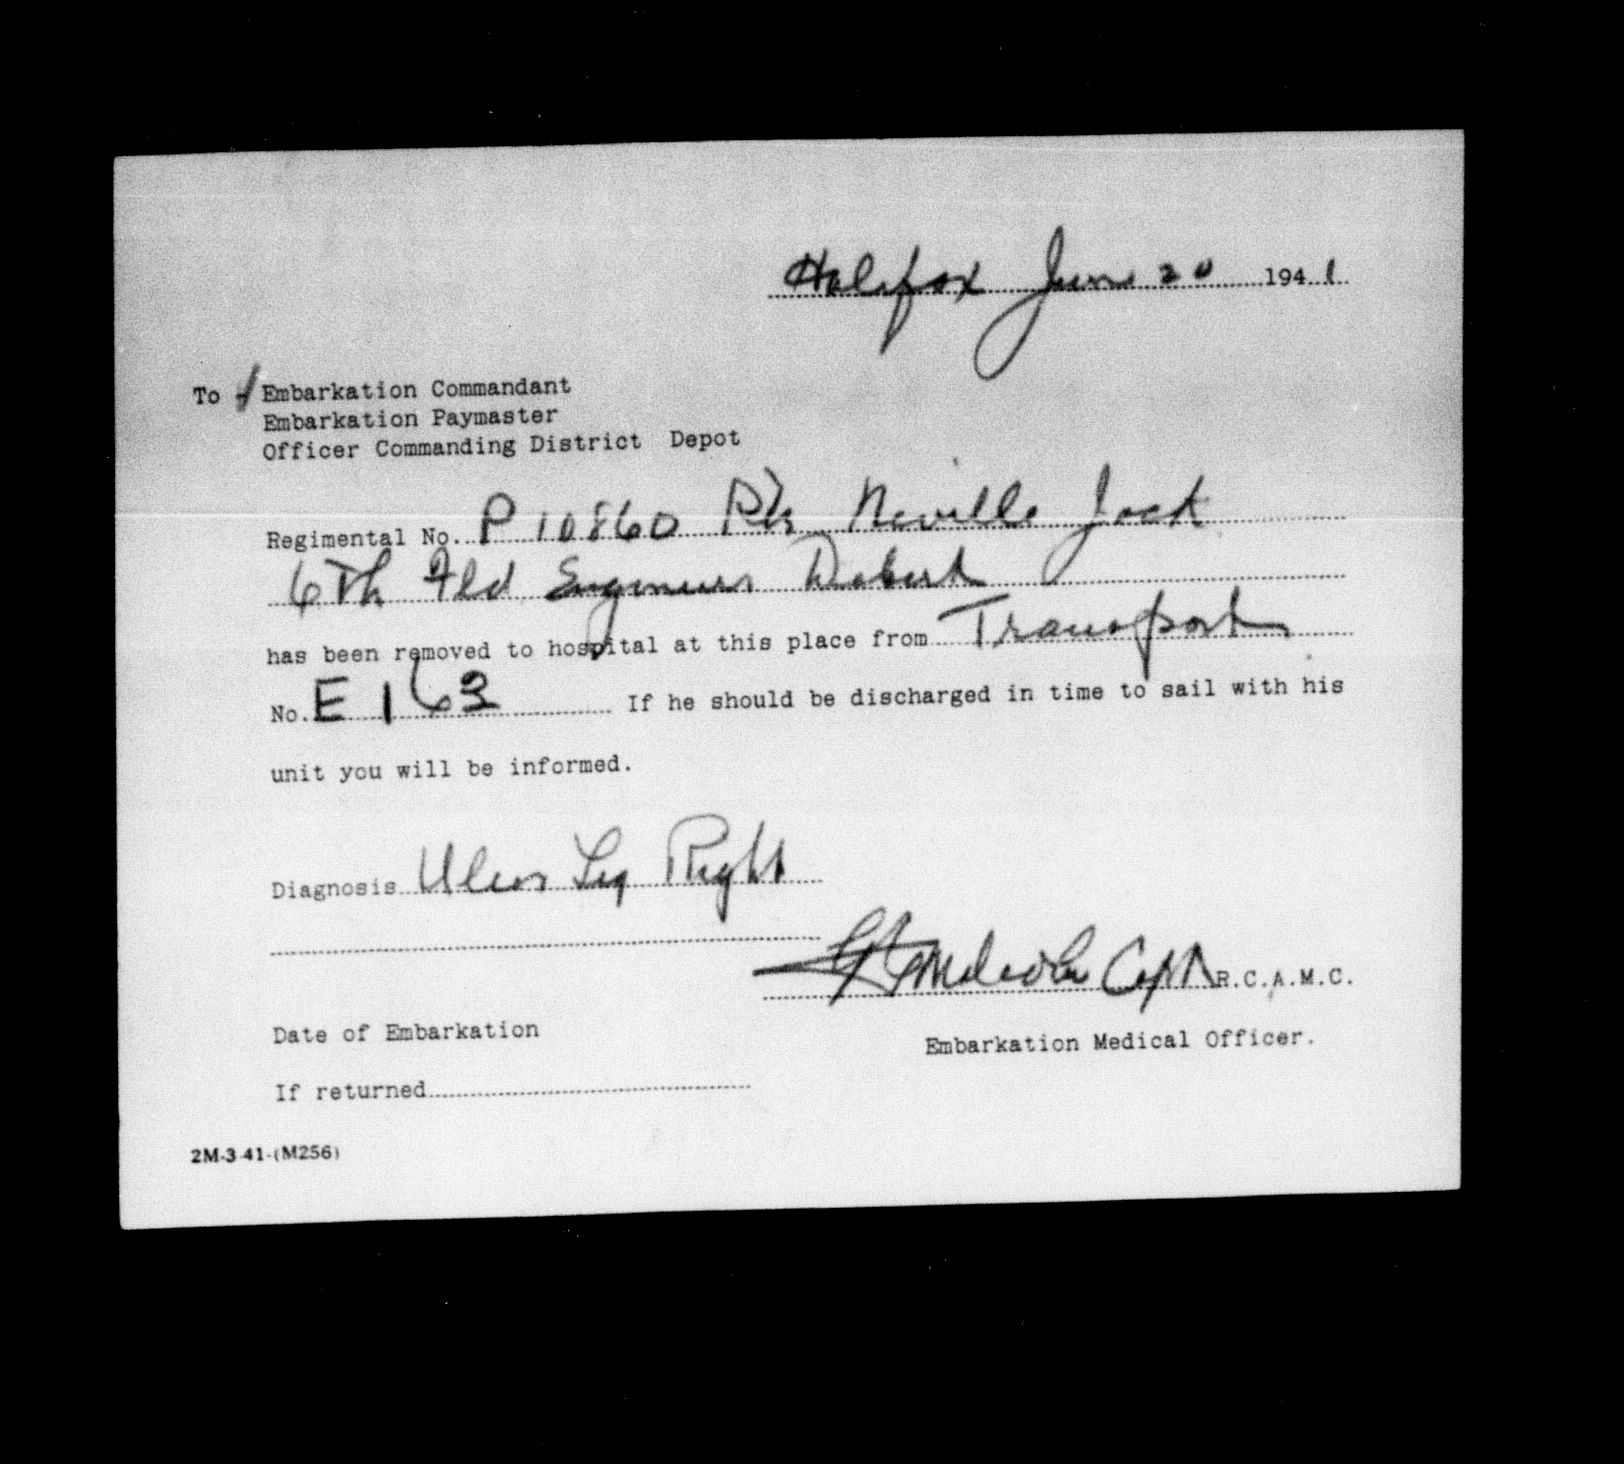 Halifax June 20 1941
To Embarkation Commandant
Embarkation Paymaster
Officer Commanding District Depot
Regimental No. P 10860 Neville Jack
6th Fld Engineers Debert
has been removed to hospital at this place from Transport
No. E 163 If he should be discharged in time to sail with his
unit you will be informed.
Diagnosis Ulcer Leg Right
Capt R.C.A.M.C.
Date of Embarkation
Embarkation Medical Officer.
If returned
2M-3-41-(M256)